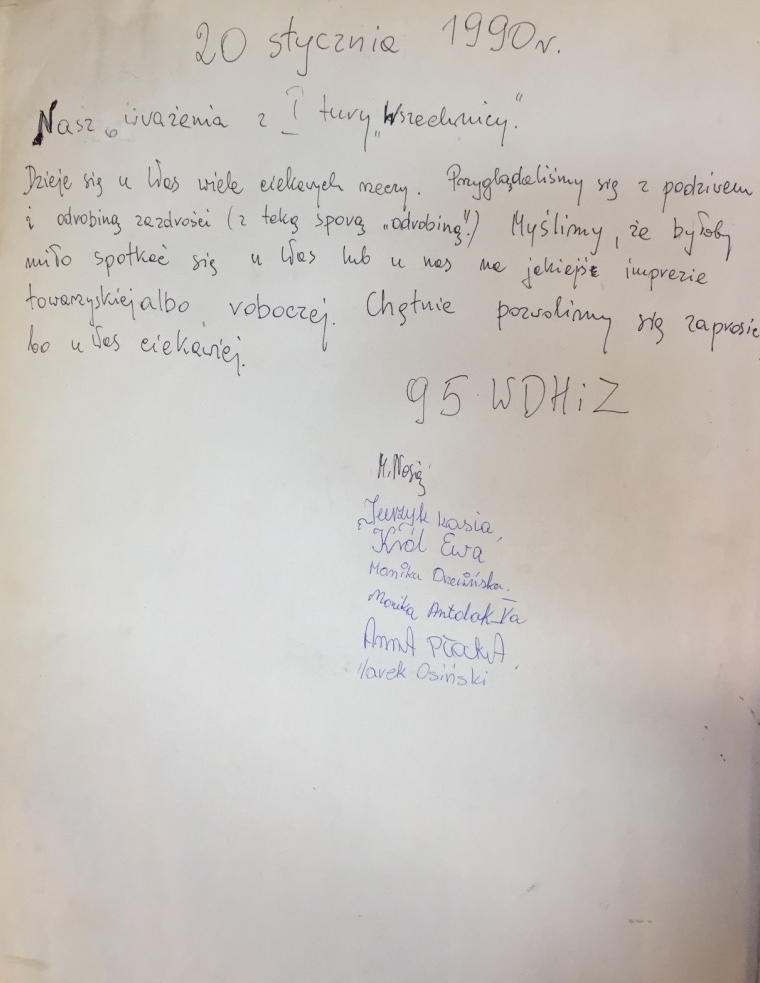 20 stycznia 1990r.
Nasze wrażenia z I tury „Wszechnicy".
Dzieje się u Was wiele ciekawych rzeczy. Przyglądaliśmy się z podziwem
i odrobiną zazdrości (z taką sporą „odrobiną"!) Myślimy, że byłoby
miło spotkać się u Was lub u nas na jakiejś imprezie
towarzyskiej albo roboczej. Chętnie pozwolimy się zaprosić
bo u Was ciekawiej.
95 WDHiZ
Kasia
Król Ewa
Monika
Monika Antolak Va
AnnA PłackA
Marek Osiński